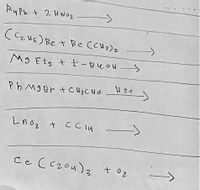 RyPh + 2 HNO3 →
(C2H5)Be + Be(CH3)2 →
MgEt2 + t-BuOH →
PhMgBr + CH3CHO H2O →
LnO3 + CCl4 →
Ce(C2O4)3 + O2 →